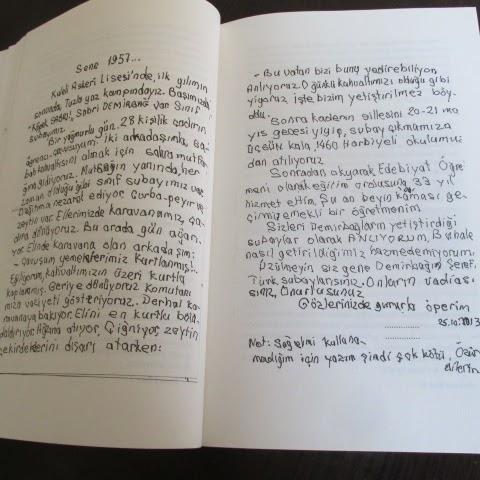 Sene 1957...
Kuleli Askerî Lisesi'nde, ilk yılımın
sonunda, Tuzla yaz kampındayız. Başımızda
"Köpek Sabri, Sabri DEMİRBAĞ var. Sınıf
subayımız.
Bir yağmurlu gün. 28 kişilik çadırın
öğrenci çavuşuyum. İki arkadaşımla, sa-
bah kahvaltısını almak için sahra mutfa-
ğına gidiyoruz. Mutfağın yanında, her
zaman olduğu gibi sınıf subayımız var.
Dağıtıma nezaret ediyor. Çorba-peynir-
zeytin var. Ellerimizde karavanamız, ça-
dıra dönüyoruz. Bu arada gün ağarı-
yor. Elinde karavana olan arkadaşım:
- Çavuşum yemeklerimiz kurtlanmış!..
Eğiliyorum, kahvaltımızın üzeri kurtla
kaplanmış. Geriye dönüyoruz komutanı
mıza vaziyeti gösteriyoruz. Derhal ka-
ravanaya bakıyor. Elini en kurtlu böla
daldırıyor. Ağzına atıyor. Çiğniyor, zeytin
çekirdeklerini dışarı atarken:
- Bu vatan bizi bunu yedirebiliyor.
Anlıyoruz. O günkü kahvaltımızı olduğu gibi
yiyoruz. İşte bizim yetiştirilmez böy-
oldu.
Sonra kaderin sillesini 20-21 ma
yıs gecesi yiyip, subay çıkmamıza
üç gün kala, 1460 Harbiyeli okulumuz
dan atılıyoruz.
Sonradan okuyarak Edebiyat Öğre
meni olarak eğitim ordusuna 33 yıl
hizmet ettim. Şu an beyin kanaması ge-
çirmiş emekli bir öğretmenim.
Sizleri Demirbağların yetiştirdiği
subaylar olarak ANLIYORUM. Bu hale
nasıl getirildiğimizi hazmedemiyorum.
Üzülmeyin siz gene Demirbağın Şerefli
Türk subaylarısınız. Onların vadisi
siniz, Onurlusunuz
Gözlerinizden gururla öperim
25.10.2013
Not: Sağ elimi kullana
madığım için yazım şimdi çok kötü, Özür
dilerim.